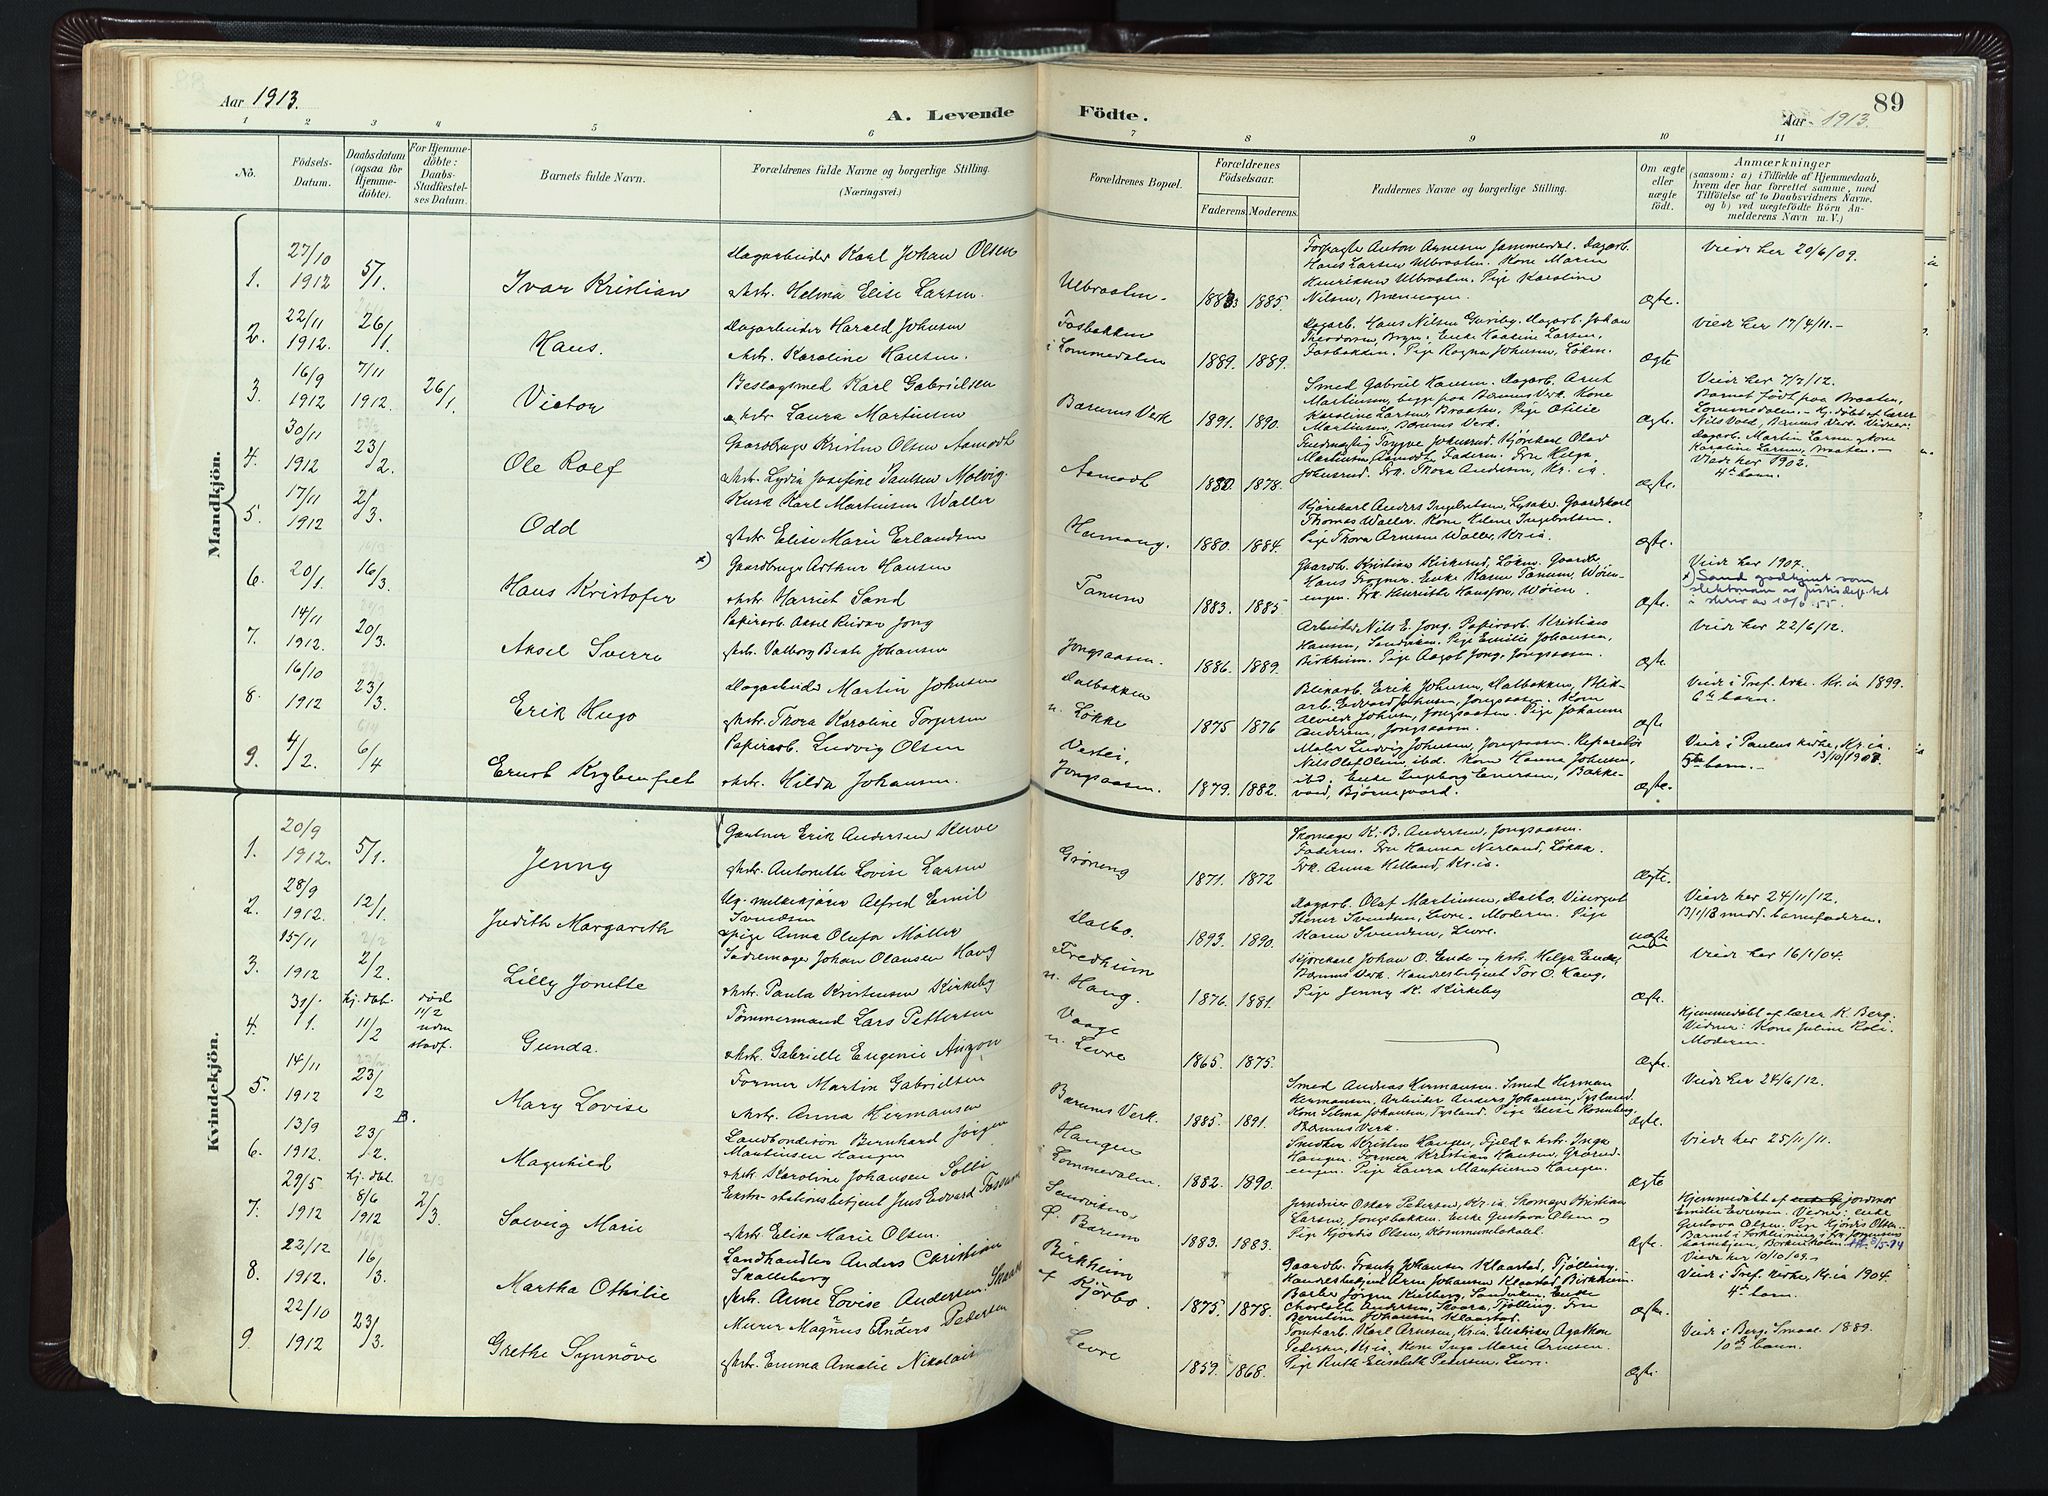 89
Aar 1913.
A. Levende
Födte.
Aar 1913.
1 2 3 4 5 6 7 8 9 10 11
No.
Födsels-Datum.
Daabsdatum (ogsaa for Hjemme-döbte).
For Hjemme-döbte: Daabs-Stadfæstel-ses Datum.
Barnets fulde Navn.
Forældrenes fulde Navne og borgerlige Stilling.
(Næringsvei.)
Forældrenes Bopæl.
Forældrenes Födselsaar.
Faderens. Moderens.
Faddernes Navne og borgerlige Stilling.
Om ægte eller uægte födt.
Anmærkninger
(saasom: a) i Tilfælde af Hjemmedaab,
hvem der har forrettet samme, med
Tilföielse af to Daabsvidners Navne,
og b) ved uægtefödte Börn An-
melderens Navn m. V.)
Mandkjön.
1. 27/10 1912 5/1. Ivar Kristian
Dagarbeider Karl Johan Olsen
Hstr. Helma Elise Larsen.
Ulbraaten. 1883 1885.
Hans Larsen Ulbraaten. Kone Maren
Henriksen Ulbraaten. Pige Karoline
Ægte.
Viede her 20/6/09.
2. 22/11 1912. 26/1 Hans.
Dagarbeider Harald Johnsen
Hstr. Karoline Hansen.
Fosbakken i Lommedalen 1889. 1889.
Fosbakken. Pige Ragna Johnsen, Løken.
Ægte
Viede her 17/4/11.-
3. 16/9 1912 7/11 1912. 26/1. Victor
Beslagsmed Karl Gabrielsen
Hstr. Laura Martinsen
Bærums Verk 1891. 1890.
Smed Gabriel Hansen. Dagarb. Arnt
Martinsen, begge paa Bærums Verk. Kone
Karoline Larsen, Braaten, Pige Otilie
Martinsen, Bærums Verk.
Ægte.
Viede her 7/7/12.
Barnet født paa Braaten,
Lommedalen.- Hj. døbt af lærer
Nils Vold, Bærums Verk. Vidner:
Dagarb. Martin Larsen og kone
Karoline Larsen, Braaten.-
4. 30/11 1912 23/2. Ole Rolf
Gaardbruger Kristen Olsen Aamodt
Hstr. Lydia Josefine Paulsen Molvig.
Aamodt 1880. 1878.
Martinsen, Aamodt. Faderen. Fru Helga
Johnsrud. Frk. Thora Andersen, Kr.ia.
Ægte.
Viede her 1902.
4de barn.
5. 17/11 1912 2/3. Odd
Kusk Karl Martinsen Waller
Hstr. Elise Marie Erlandsen
Hamang. 1880. 1884.
Kjørekarl Anders Ingebretsen, Lysaker. Gaardskarl
Thomas Waller. Kone Helene Ingebretsen.
Pige Thora Arnesen Waller, Kr.ia.
Ægte.
6. 20/1. 16/3. Hans Kristofer
x) Gaardbruger Arthur Hansen
Hstr. Harriet Sand
Tanum 1883. 1885
Gaardb. Kristian Kirkerud, Løken. Gaardb.
Hans Frogner. Enke Karen Tanum, Wøien-
engen. Frk. Henriette Hansson, Wøien.
Ægte.
Viede her 1907.
x) Sand godkjent som
slektsnavn av Justisdep.tet
i skriv av 10/6-55.
7. 14/11 1912. 20/3. Aksel Sverre
Papirarb. Aksel Reidar Jong
Hstr. Valborg Beate Johansen
Jongsaasen. 1886. 1889.
Arbeider Nils E. Jong. Papirarb. Kristian
Hansen, Sandviken. Pige Emilie Johansen,
Birkheim. Pige Aagot Jong, Jongsaasen.
Ægte.
Viede her 22/6/12.
8. 16/10 1912 23/3 Erik Hugo
Dagarbeider Martin Johnsen
Hstr. Thora Karoline Torgersen
Dalbakken u. Løkke 1875 1876
Blikarb. Erik Johnsen, Dalbakken, Blik-
arb. Edvard Johnsen, Jongsaasen. Kone
Alvilde Johnsen, Jongsaasen. Pige Johanne
Andersen, Jongsaasen.
Ægte
Viede i Tref. kirke. Kr.ia 1899.
6te barn.
9. 4/2. 6/4 Ernst Krybenfelt
Papirarb. Ludvig Olsen
Hstr. Hilda Johansen.
Vestei, Jongsaasen. 1879. 1882.
Maler Ludvig Johnsen, Jongsaasen. Reparatør
Nils Olaf Olsen, ibd. Kone Hanna Johnsen,
ibd. Enke Ingeborg Eversen, Bakke-
vold, Bjørnegaard.
Ægte.
Viede i Paulus kirke, Kr.ia.
13/10/1901.
5te barn.-
Kvindekjön.
1. 20/9 1912. 5/1. Jenny
Gartner Erik Andersen Reive
Hstr. Antonette Lovise Larsen
Grøneng 1871. 1872
Skomager K. B. Andersen, Jongsaasen.
Faderen. Fru Hanna Nerland, Løkka.
Frk. Anna Helland, Kr.ia.
Ægte.
2. 28/9 1912. 12/1. Judith Margareth
Ug. melkekjører Alfred Emil
Svendsen
Pige Anna Olufa Møller
Dalbo. 1893. 1890.
Dagarb. Olaf Martinsen, Dalbo. Visergut
Stener Svendsen, Levre. Moderen. Pige
Karen Svendsen, Levre.
uægte
Viede her 24/11/12.
13/1/13 medd. barnefaderen.
3. 15/11 1912 2/2. Lilly Jonette
Sadelmager Johan Olausen Haug
Hstr. Paula Kristensen Kirkeby
Fredheim u. Haug. 1876. 1881.
Kjørekarl Johan O. Ende og hstr. Helga Ende,
Bærums Verk. Handelsbetjent Tor O. Haug,
Pige Jenny K. Kirkeby
Ægte.
Viede her 16/1/04.
4. 31/1. hj. dbt. 11/2 død 11/2 uden stadf. Gunda.
Tømmermand Lars Pettersen
Hstr. Gabrielle Eugenie Anzon
Vaage u. Levre 1865. 1875.
Ægte.
Hjemmedøbt af lærer K. Berg.
Vidner: Kone Juline Roli.
Moderen.
5. 14/11 1912 23/2 Mary Lovise
Former Martin Gabrielsen
Hstr. Anna Hermansen
Bærums Verk. 1885. 1891.
Smed Andreas Hermansen. Smed Herman
Hermansen, Arbeider Anders Johansen, Tysland.
Kone Selma Johansen, Tysland. Pige Elise Rosenberg,
Bærums Verk.
Ægte.
Viede her 24/6/12.
6. 13/9 1912. 23/2. B. Magnhild
Landbondesøn Bernhard Jørgen
Martinsen Haugen
Hstr. Karoline Johansen Solli
Haugen Lommedalen. 1882. 1890.
Snedker Kristen Haugen, Fjeld & hstr. Inga
Haugen. Former Kristian Hansen, Grorud-
engen. Pige Laura Martinsen Haugen.
Ægte
Viede her 25/11/11.
7. 29/5 1912 hj. dbt. 8/6 1912 2/3. Solveig Marie
Ekstra-stationsbetjent Jens Edvard Fossum
Hstr. Elise Marie Olsen.
Sandviken, Ø. Bærum 1883. 1883.
Jerndreier Oskar Petersen, Kr.ia. Skomager Kristian
Larsen, Jongsbakken. Enke Gustava Olsen og
Pige Hjørdis Olsen, Kommunelokalet.
Ægte.
Hjemmedøbt af Gjordmor
Emilie Eversen. Vidner: Enke
Gustava Olsen. Pige Hjørdis Olsen.
Viede her 10/10/09.-
8. 22/12 1912. 16/3. Martha Othilie
Landhandler Anders Christian
Skalleberg
Hstr. Anne Lovise Andersen, Skaara
Birkheim af Kjørbo. 1875. 1878.
Gaardb. Frantz Johansen Klaastad, Tjølling.
Handelsbetjent Arne Johansen Klaastad, Birkheim.
Barber Jørgen Kielberg, Sandviken. Enke
Charlotte Andersen, Skaara, Tjølling. Fru
Berntine Johansen Klaastad.
Ægte.
Viede i Tref. kirke, Kr.ia 1904.
4de barn.
9. 22/10 1912 23/3. Grethe Synnøve
Murer Magnus Anders Pedersen
Hstr. Emma Amalie Nikolaisen
Levre 1859. 1868.
Tomtarb. Karl Arnesen, Kr.ia. Elektriker Agathon
Pedersen, Kr.ia. Kone Inga Marie Arnesen.
Pige Ruth Elisabeth Pedersen, Levre.
Ægte.
Viede i Berg, Smaal. 1889.
10de barn.